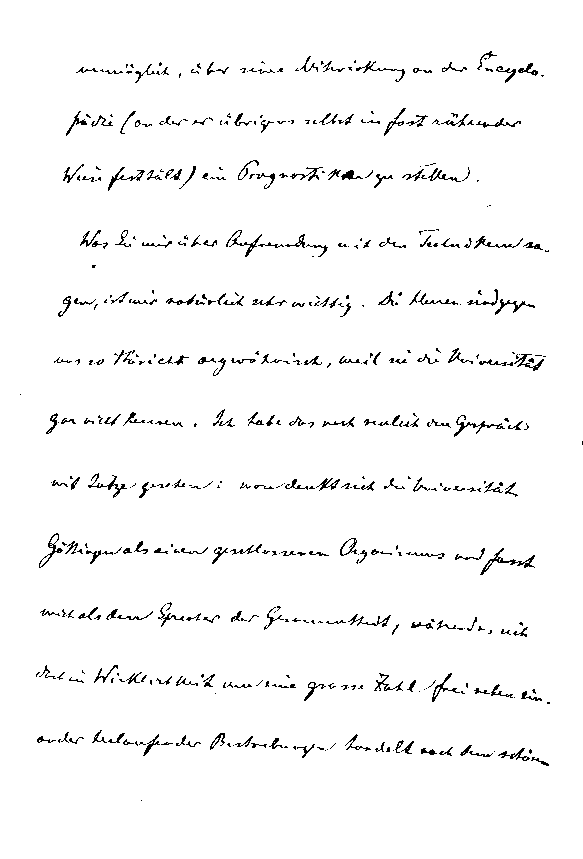 unmöglich, über seine Mitwirkung an der Encyclo-
pädie (an der er übrigens selbst in fast rührender
Weise festhält) ein Prognostikon zu stellen.
Was Sie mir über Anfreundung mit den Technikern sa-
gen, ist mir natürlich sehr wichtig. Die Herren sind gegen
uns so thöricht argwöhnisch, weil sie die Universität
gar nicht kennen. Ich habe das noch neulich den Gespräch
mit gesehen: man denkt sich die Universität
Göttingen als einen geschlossenen Organismus und fasst
mich als den Sprecher der Gesammtheit, während es sich
doch in Wirklichkeit um eine grosse Zahl frei neben ein-
ander herlaufender Bestrebungen handelt nach dem schönen